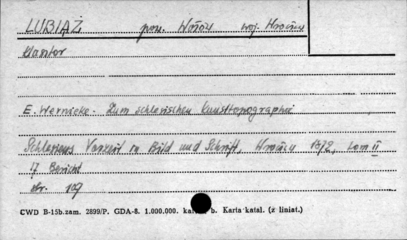 LUBIĄŻ pow. Wołów woj. Wrocław
Klasztor
E. Wernicke. Zum schlesischen Kunsttopographie
Schlesiens Vorzeit in Bild und Schrift, Wrocław 1872, tom II
17 Bericht
str. 109
CWD B-15b. zam. 2899/P. GDA-8. 1.000.000. b. Karta katal. (z liniat.)